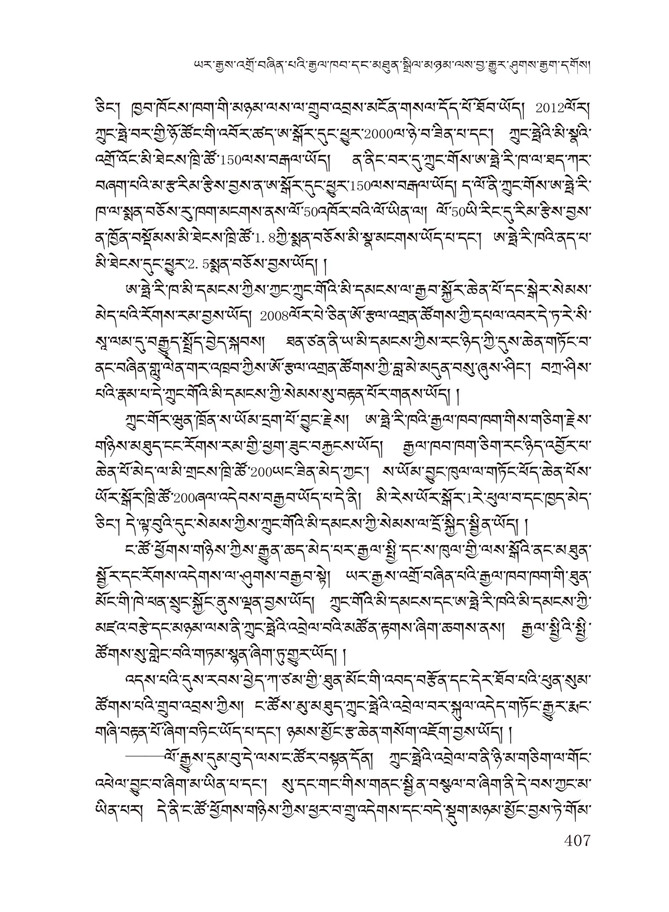 ཡར་རྒྱས་འགྲོ་བཞིན་པའི་རྒྱལ་ཁབ་དང་མཐུན་སྒྲིལ་མཉམ་ལས་བྱ་རྒྱུར་ཤུགས་རྒྱག་དགོས།
ཅིང་། ཁྱབ་ཁོངས་ཁག་གི་མཉམ་ལས་ལ་གྲུབ་འབྲས་མངོན་གསལ་དོད་པོ་ཐོབ་ཡོད། 2012ལོར།
ཀྲུང་ཧྥེ་བར་གྱི་ཉོ་ཚོང་གི་འབོར་ཚད་ཨ་སྒོར་དུང་ཕྱུར་2000ལ་ཉེ་བ་ཟིན་པ་དང་། ཀྲུང་ཧྥེའི་མི་སྣའི་
འགྲོ་འོང་མི་ཐེངས་ཁྲི་ཚོ་150ལས་བརྒལ་ཡོད། ད་ནི་བར་དུ་ཀྲུང་གོས་ཨ་ཧྥེ་རི་ཁ་ལ་ཐད་ཀར་
བཞག་པའི་མ་རྩ་རིམ་རྩིས་བྱས་ན་ཨ་སྒོར་དུང་ཕྱུར་150ལས་བརྒལ་ཡོད། ད་ལོ་ནི་ཀྲུང་གོས་ཨ་ཧྥེ་རི་
ཁ་ལ་སྨན་བཅོས་རུ་ཁག་མངགས་ནས་ལོ་50འཁོར་བའི་ལོ་ཡིན་ལ། ལོ་50ཡི་རིང་དུ་རིམ་རྩིས་བྱས་
ན་ཁྱོན་བསྡོམས་མི་ཐེངས་ཁྲི་ཚོ་1. 8ཀྱི་སྨན་བཅོས་མི་སྣ་མངགས་ཡོད་པ་དང་། ཨ་ཧྥེ་རི་ཁའི་ནད་པ་
མི་ཐེངས་དུང་ཕྱུར་2. 5སྨན་བཅོས་བྱས་ཡོད། །
ཨ་ཧྥེ་རི་ཁ་མི་དམངས་ཀྱིས་ཀྱང་ཀྲུང་གོའི་མི་དམངས་ལ་རྒྱབ་སྐྱོར་ཆེན་པོ་དང་སྒེར་སེམས་
མེད་པའི་རོགས་རམ་བྱས་ཡོད། 2008ལོར་པེ་ཅིན་ཨོ་རྩལ་འགྲན་ཚོགས་ཀྱི་དཔལ་འབར་དེ་ཏ་རེ་སི་
སཱ་ལམ་དུ་བརྒྱུད་སྤྲོད་བྱེད་སྐབས། ཐན་ཙན་ནི་ཡ་མི་དམངས་ཀྱིས་རང་ཉིད་ཀྱི་དུས་ཆེན་གཏོང་བ་
ནང་བཞིན་གླུ་ལེན་གར་འཁྲབ་ཀྱིས་ཨོ་རྩལ་འགྲན་ཚོགས་ཀྱི་བླ་མེ་མདུན་བསུ་ཞུས་ཤིང་། བཀྲ་ཤིས་
པའི་རྣམ་པ་དེ་ཀྲུང་གོའི་མི་དམངས་ཀྱི་སེམས་སུ་བརྟན་པོར་གནས་ཡོད། །
ཀྲུང་གོར་ཝུན་ཁྲོན་ས་ཡོམ་དྲག་པོ་བྱུང་རྗེས། ཨ་ཧྥེ་རི་ཁའི་རྒྱལ་ཁབ་ཁག་གིས་གཅིག་རྗེས་
གཉིས་མཐུད་ངང་རོགས་རམ་གྱི་ཕྱག་ཟུང་བརྐྱངས་ཡོད། རྒྱལ་ཁབ་ཁག་ཅིག་རང་ཉིད་འབྱོར་པ་
ཆེན་པོ་མེད་ལ་མི་གྲངས་ཁྲི་ཚོ་200ཡང་ཟིན་མེད་ཀྱང་། ས་ཡོམ་བྱུང་ཁུལ་ལ་གཏོང་ཕོད་ཆེན་པོས་
ཡོར་སྒོར་ཁྲི་ཚོ་200ཞལ་འདེབས་བརྒྱབ་ཡོད་པ་དེ་ནི། མི་རེས་ཡོར་སྒོར་1རེ་ཕུལ་བ་དང་ཁྱད་མེད་
ཅིང་། དེ་ལྟ་བུའི་དུང་སེམས་ཀྱིས་ཀྲུང་གོའི་མི་དམངས་ཀྱི་སེམས་ལ་དྲོ་སྐྱིད་སྦྱིན་ཡོད། །
ང་ཚོ་ཕྱོགས་གཉིས་ཀྱིས་རྒྱུན་ཆད་མེད་པར་རྒྱལ་སྤྱི་དང་ས་ཁུལ་གྱི་ལས་སྒོའི་ནང་མཐུན་
སྦྱོར་དང་རོགས་འདེགས་ལ་ཤུགས་བརྒྱབ་སྟེ། ཡར་རྒྱས་འགྲོ་བཞིན་པའི་རྒྱལ་ཁབ་ཁག་གི་ཐུན་
མོང་གི་ཁེ་ཕན་སྲུང་སྐྱོང་ནུས་ལྡན་བྱས་ཡོད། ཀྲུང་གོའི་མི་དམངས་དང་ཨ་ཧྥེ་རི་ཁའི་མི་དམངས་ཀྱི་
མཛའ་བརྩེ་དང་མཉམ་ལས་ནི་ཀྲུང་ཧྥེའི་འབྲེལ་བའི་མཚོན་རྟགས་ཞིག་ཆགས་ནས། རྒྱལ་སྤྱིའི་སྤྱི་
ཚོགས་སུ་གླེང་བའི་གཏམ་སྙན་ཞིག་ཏུ་གྱུར་ཡོད། །
འདས་པའི་དུས་རབས་ཕྱེད་ཀ་ཙམ་གྱི་ཐུན་མོང་གི་འབད་བརྩོན་དང་དེར་ཐོབ་པའི་ཕུན་སུམ་
ཚོགས་པའི་གྲུབ་འབྲས་ཀྱིས། ང་ཚོས་མུ་མཐུད་ཀྲུང་ཧྥེའི་འབྲེལ་བར་སྐུལ་འདེད་གཏོང་རྒྱུར་རྨང་
གཞི་བརྟན་པོ་ཞིག་བཏིང་ཡོད་པ་དང་། ཉམས་མྱོང་རྩ་ཆེན་གསོག་འཇོག་བྱས་ཡོད། །
———ལོ་རྒྱུས་དུམ་བུ་དེ་ལས་ང་ཚོར་བསྟན་དོན། ཀྲུང་ཧྥེའི་འབྲེལ་བ་ནི་ཉི་མ་གཅིག་ལ་གོང་
འཕེལ་བྱུང་བ་ཞིག་མ་ཡིན་པ་དང་། སུ་དང་གང་གིས་གནང་སྦྱིན་བསྩལ་བ་ཞིག་ནི་དེ་བས་ཀྱང་མ་
ཡིན་པར། དེ་ནི་ང་ཚོ་ཕྱོགས་གཉིས་ཀྱིས་ཕྱར་བ་གྲུ་འདེགས་དང་བདེ་སྡུག་མཉམ་མྱོང་བྱས་ཏེ་གོམ་
407